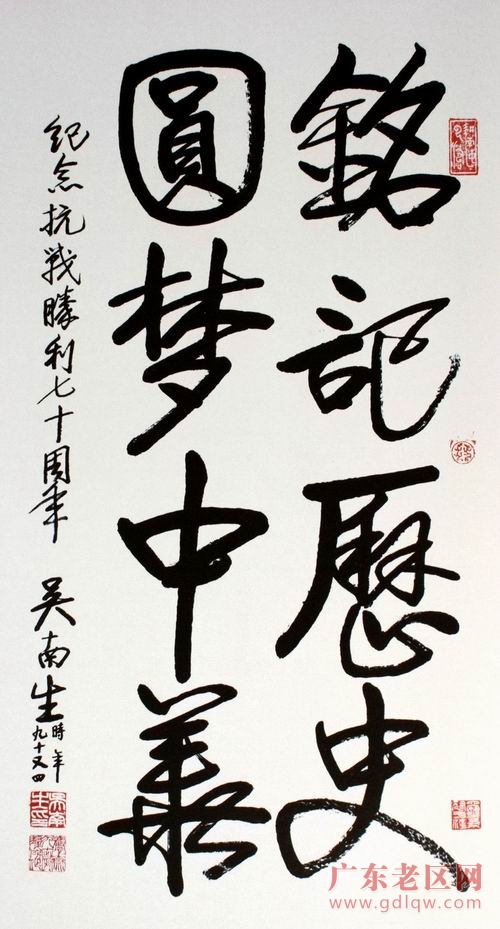 銘記歷史
圓梦中華
纪念抗戰勝利七十周年 吴南生 時年九十又四
广东老区网
www.gdlqw.com